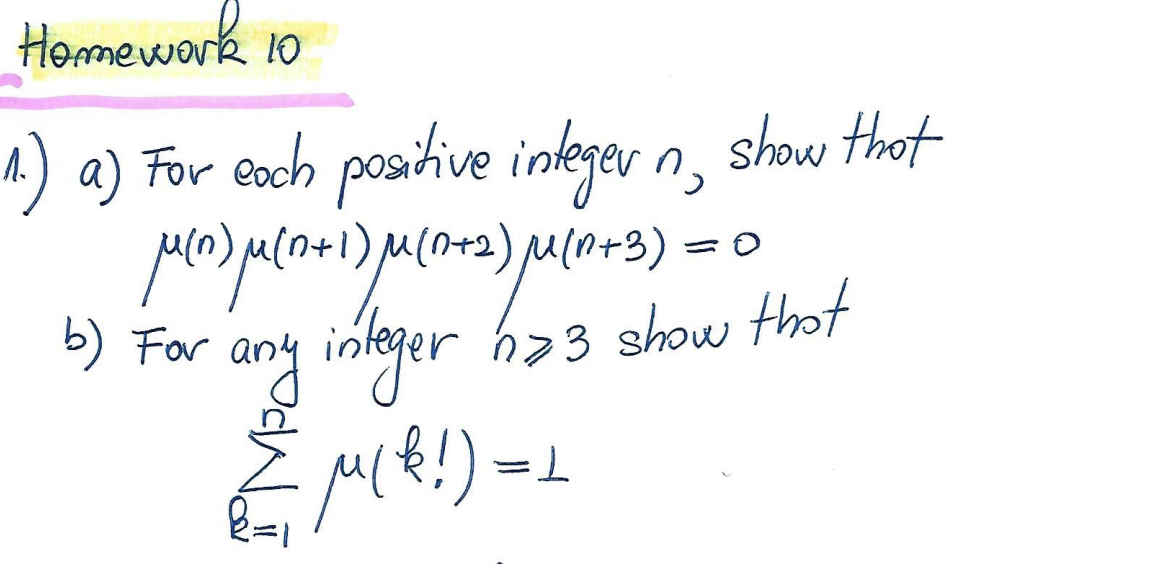 Homework 10
1.) a) For each positive integer n, show that
μ(n) μ(n+1) μ(n+2) μ(n+3) = 0
b) For any integer n ⩾ 3 show that
n
Σ μ(k!) = 1
k=1